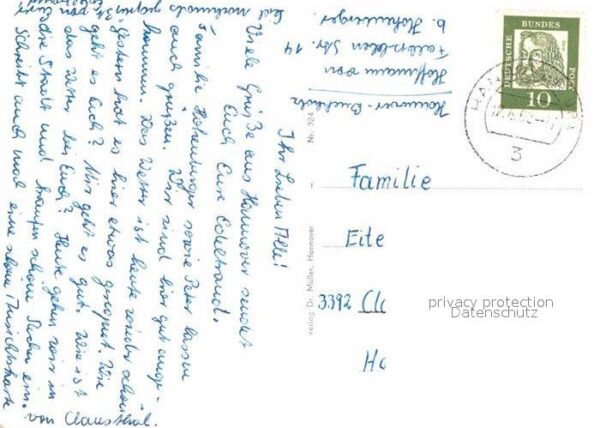 Ihr Lieben Alle!
Viele Grüße aus Hannover sendet
Euch Eure Edeltraud.
Familie Hohenberger sowie Peter lassen
auch grüßen. Wir sind hier gut ange-
kommen. Das Wetter ist heute wieder schön
gestern hat es hier etwas geregnet. Wie
geht es Euch? Mir geht es gut. Wie ist
das Wetter bei Euch? Heute gehen wir in
die Stadt und kaufen schöne Sachen ein.
Schreibt auch mal eine schöne Ansichtskarte
von Clausthal.
nochmals
Hannover-Buchholz
Hoffmann von
Fallersleben Str. 14
b. Hohenberger
DEUTSCHE BUNDES POST
10
HAN
3
Familie
Eite
3392 Cla
Ha
Nr. 324
Verlag Dr. Müller, Hannover
privacy protection
Datenschutz